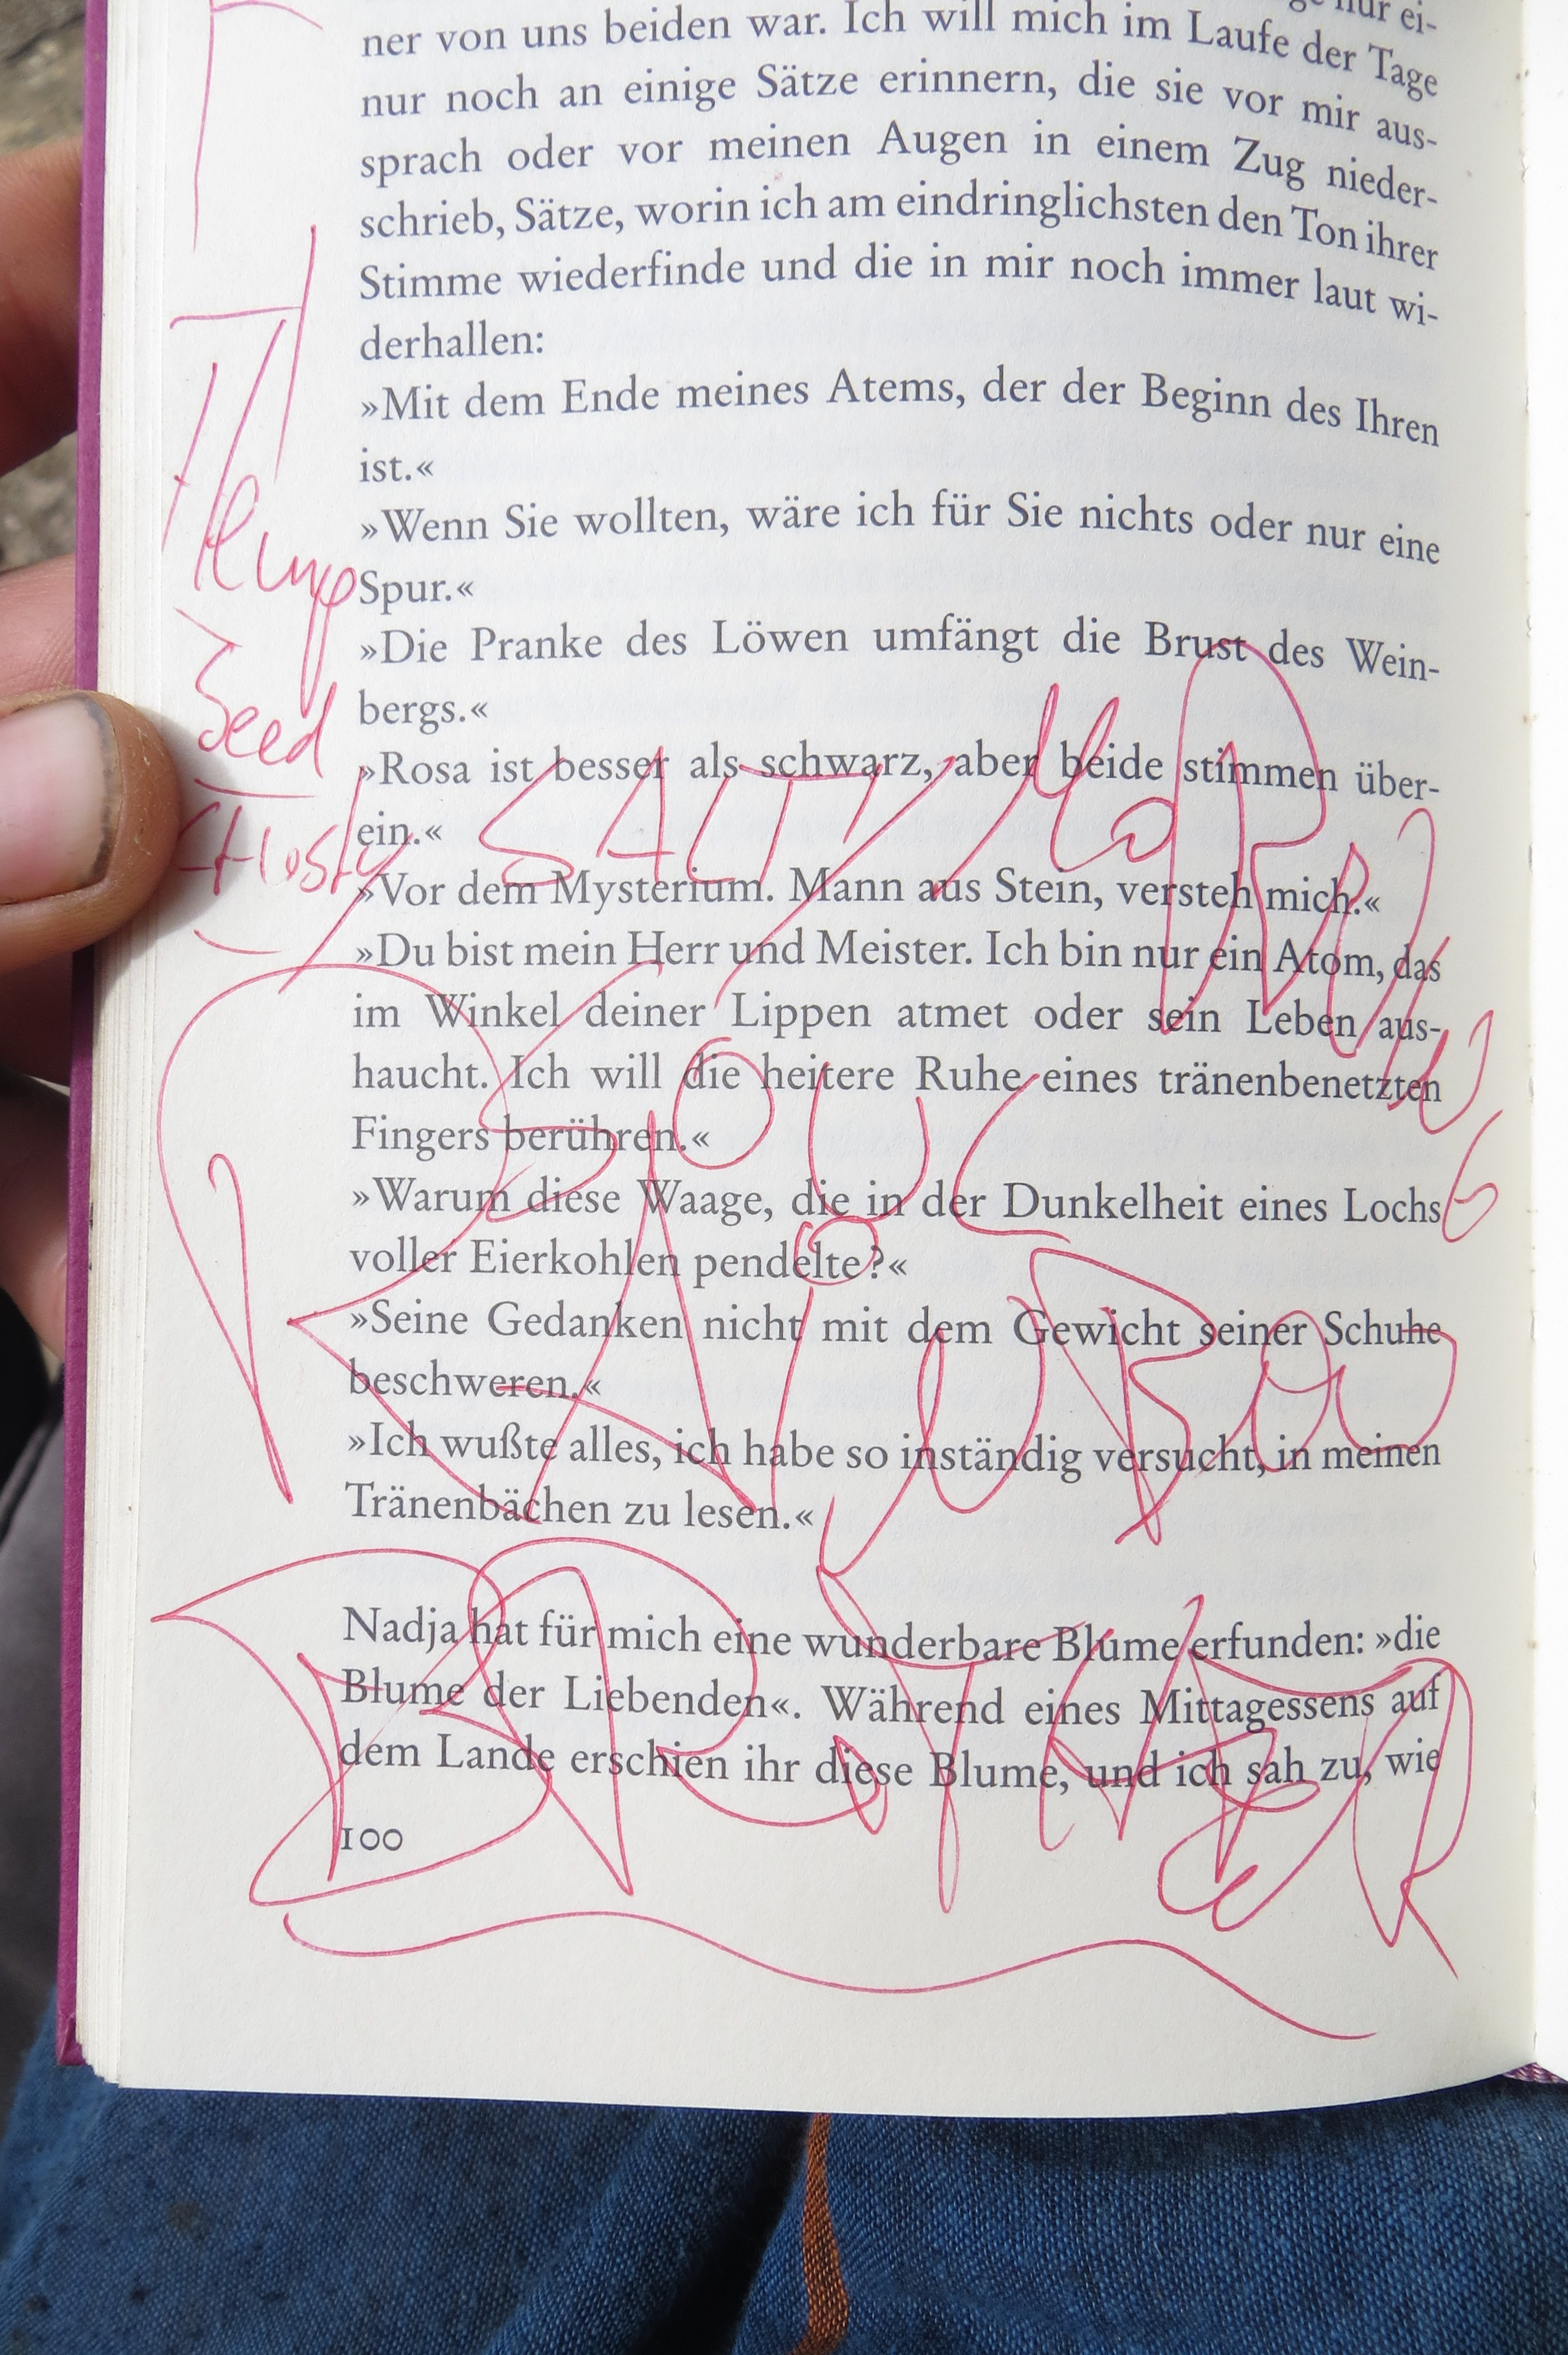 nur ei-
ner von uns beiden war. Ich will mich im Laufe der Tage
nur noch an einige Sätze erinnern, die sie vor mir aus-
sprach oder vor meinen Augen in einem Zug nieder-
schrieb, Sätze, worin ich am eindringlichsten den Ton ihrer
Stimme wiederfinde und die in mir noch immer laut wi-
derhallen:
»Mit dem Ende meines Atems, der der Beginn des Ihren
ist.«
»Wenn Sie wollten, wäre ich für Sie nichts oder nur eine
Spur.«
»Die Pranke des Löwen umfängt die Brust des Wein-
bergs.«
»Rosa ist besser als schwarz, aber beide stimmen über-
ein.«
»Vor dem Mysterium. Mann aus Stein, versteh mich.«
»Du bist mein Herr und Meister. Ich bin nur ein Atom, das
im Winkel deiner Lippen atmet oder sein Leben aus-
haucht. Ich will die heitere Ruhe eines tränenbenetzten
Fingers berühren.«
»Warum diese Waage, die in der Dunkelheit eines Lochs
voller Eierkohlen pendelte?«
»Seine Gedanken nicht mit dem Gewicht seiner Schuhe
beschweren.«
»Ich wußte alles, ich habe so inständig versucht, in meinen
Tränenbächen zu lesen.«
Nadja hat für mich eine wunderbare Blume erfunden: »die
Blume der Liebenden«. Während eines Mittagessens auf
dem Lande erschien ihr diese Blume, und ich sah zu, wie
100
Hemp
Seed
SALT